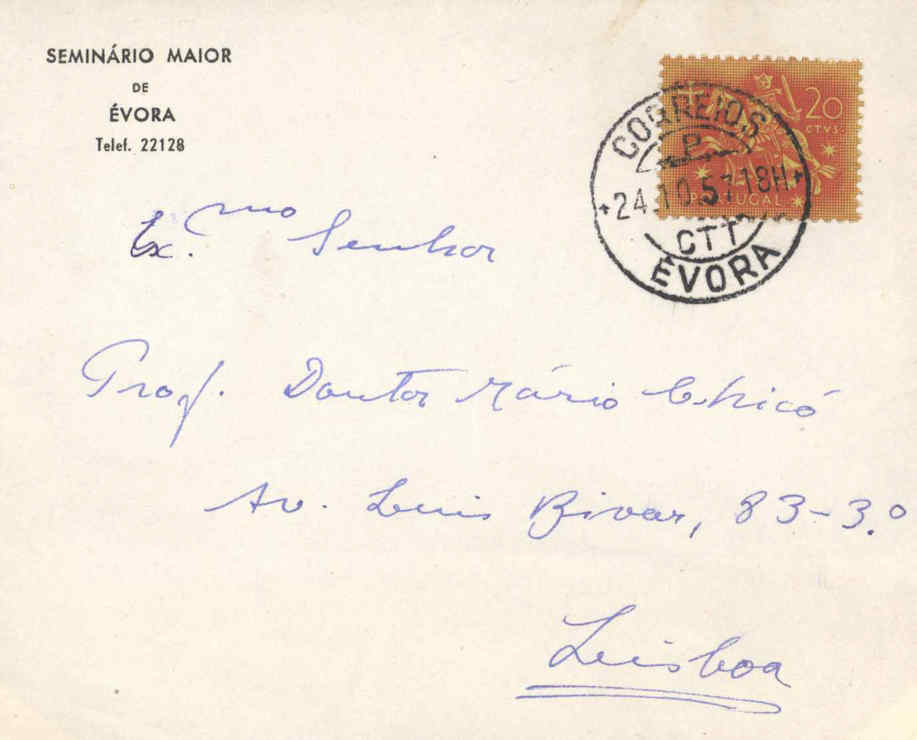 SEMINÁRIO MAIOR
DE
ÉVORA
Telef. 22128
20
CTVS.
PORTUGAL
CORREIOS
P
24.10.57.18H
CTT
ÉVORA
Ex.mo Senhor
Prof. Doutor Mário Chicó
Av. Luis Bivar, 83-3.º
Lisboa